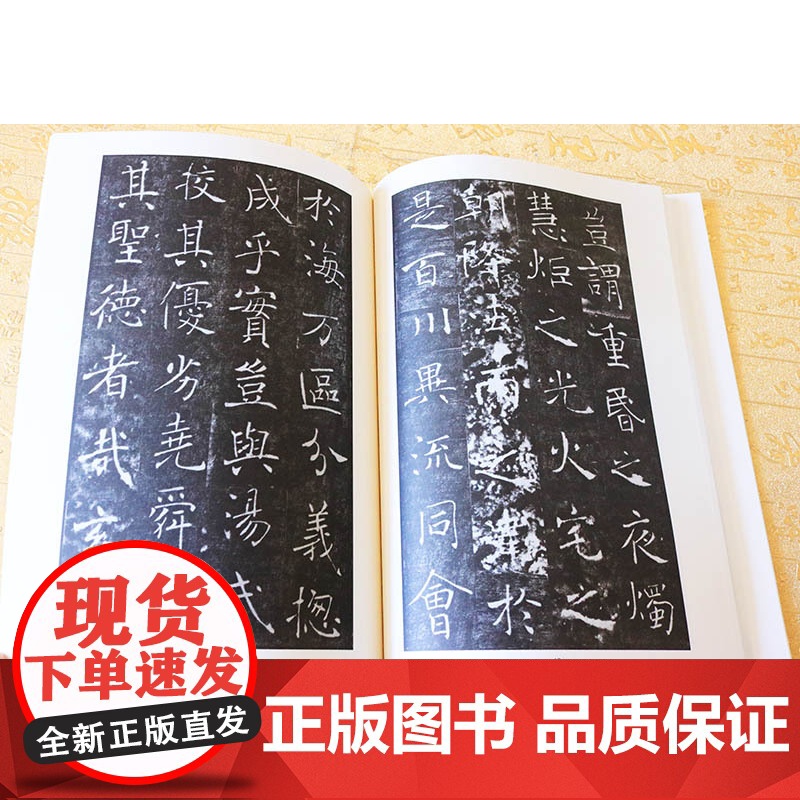 豈謂重昏之夜燭
慧炬之光火宅之
朝降法雨之澤於
是百川異流同會
於海万區分義揔
成乎實豈與湯武
挍其優劣堯舜
其聖德者哉玄
现货
下单速发
全新正版直发
正版图书 品质保证